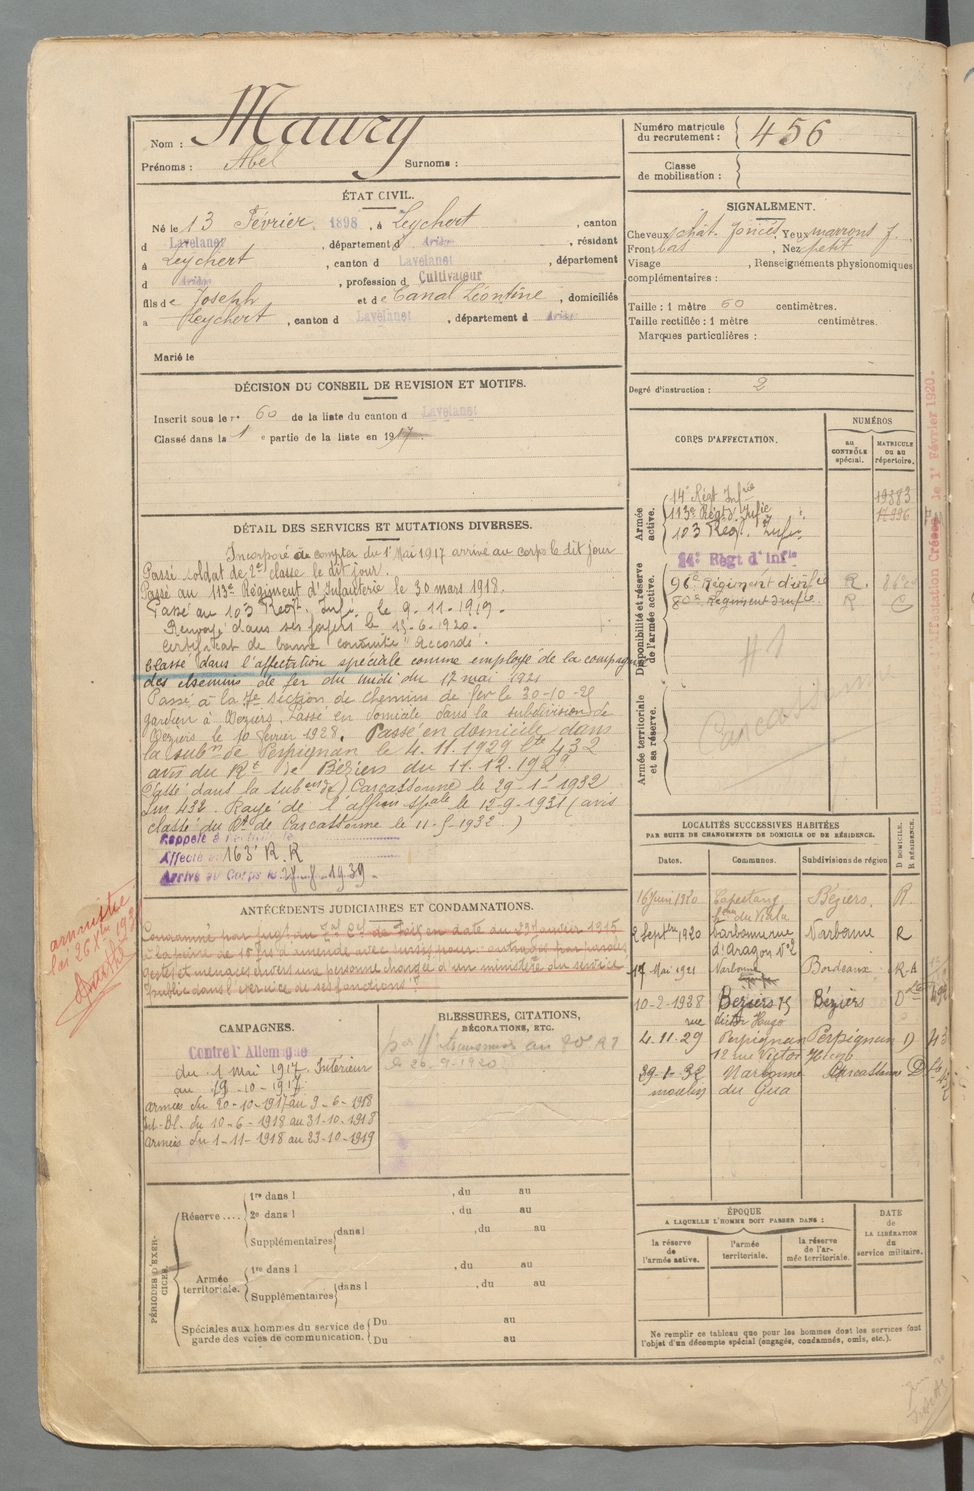 Nom : Maury
Prénoms : Abel Surnoms :
Numéro matricule du recrutement : 456
Classe de mobilisation :
ÉTAT CIVIL.
Né le 13 Février 1898, à Leychert, canton
d Lavelanet, département d Ariège, résidant
à Leychert, canton d Lavelanet, département
d Ariège, profession d Cultivateur
fils de Joseph et de Canal Léontine, domiciliés
à Leychert, canton d Lavelanet, département d Ariège
Marié le
SIGNALEMENT.
Cheveux chât. foncés Yeux marrons f
Front bas, Nez petit
Visage , Renseignements physionomiques
complémentaires :
Taille : 1 mètre 60 centimètres.
Taille rectifiée : 1 mètre centimètres.
Marques particulières :
Degré d'instruction : 2
DÉCISION DU CONSEIL DE REVISION ET MOTIFS.
Inscrit sous le n° 60 de la liste du canton d Lavelanet
Classé dans la 1 e partie de la liste en 1917
CORPS D'AFFECTATION.
NUMÉROS
au CONTRÔLE spécial.
MATRICULE OU AU répertoire.
Armée active.
14e Régt Infrie 19383
113e Régt d'Infie
103 Régt. Infie
Disponibilité et réserve de l'armée active.
14e Régt d'Infie
96e Régiment d'infie R.
80e Régiment d'infie R C
Armée territoriale et sa réserve.
Carcassonne
DÉTAIL DES SERVICES ET MUTATIONS DIVERSES.
Incorporé à compter du 1er Mai 1917 arrivé au corps le dit jour
Passé soldat de 2e classe le dit jour.
Passé au 113e Régiment d'Infanterie le 30 mars 1918.
Passé au 103 Regt. Infie le 9-11-1919.
Renvoyé dans ses foyers le 15-6-1920.
Certificat de bonne conduite "Accordé".
Classé dans l'affectation spéciale comme employé de la compagnie
des chemins de fer du midi du 17 mai 1921
Passé à la 7e section de chemins de fer le 30-10-28
gardien à Beziers. Passé en domicile dans la subdivision de
Beziers le 10 février 1928. Passé en domicile dans
la subon de Perpignan le 4.11.1929 Lte 432
avis du Rt de Béziers du 11.12.1929
Classé dans la subon de Carcassonne le 29-1-1932
Lm 432. Rayé de l'affon spale le 12-9-1931 (avis
classé du Rt de Carcassonne le 11-5-1932)
Rappelé à l'activité le
Affecté au 163e R.R
Arrivé au Corps le 1939.
ANTÉCÉDENTS JUDICIAIRES ET CONDAMNATIONS.
Condamné par jugt du Tal Cel de Foix en date du 23 Janvier 1915
à la peine de 16 frs d'amende avec sursis pour : outrages par paroles
gestes et menaces envers une personne chargée d'un ministère du service
public dans l'exercice de ses fonctions.
amnistie
CAMPAGNES.
Contre l'Allemagne
du 1 mai 1917 Intérieur
au 19-10-1917
armées du 20-10-1917 au 9-6-1918
Int-Bl. du 10-6-1918 au 31-10-1918
armées du 1-11-1918 au 23-10-1919
BLESSURES, CITATIONS, DÉCORATIONS, ETC.
le 26-9-1920
LOCALITÉS SUCCESSIVES HABITÉES
PAR SUITE DE CHANGEMENTS DE DOMICILE OU DE RÉSIDENCE.
Dates. Communes. Subdivisions de région D DOMICILE. R RÉSIDENCE.
16 Juin 1920 Capestang Béziers. R.
2 Septbre 1920 Narbonne rue d'Aragon N°2 Narbonne R
17 Mai 1921 Narbonne Bordeaux R-A
10-2-1928 Beziers 75 rue Victor Hugo Béziers D
4.11.29 Perpignan 12 rue Victor Hugo Perpignan D
29-1-32 Narbonne Carcassonne D
moulin du Gua
PÉRIODES D'EXERCICES.
Réserve....
1re dans l , du au
2e dans l , du au
Supplémentaires dans l , du au
Armée territoriale.
1re dans l , du au
Supplémentaires dans l , du au
Spéciales aux hommes du service de garde des voies de communication.
Du au
Du au
ÉPOQUE
A LAQUELLE L'HOMME DOIT PASSER DANS :
la réserve de l'armée active.
l'armée territoriale.
la réserve de l'armée territoriale.
DATE de LA LIBÉRATION du service militaire.
Ne remplir ce tableau que pour les hommes dont les services font
l'objet d'un décompte spécial (engagés, condamnés, omis, etc.).